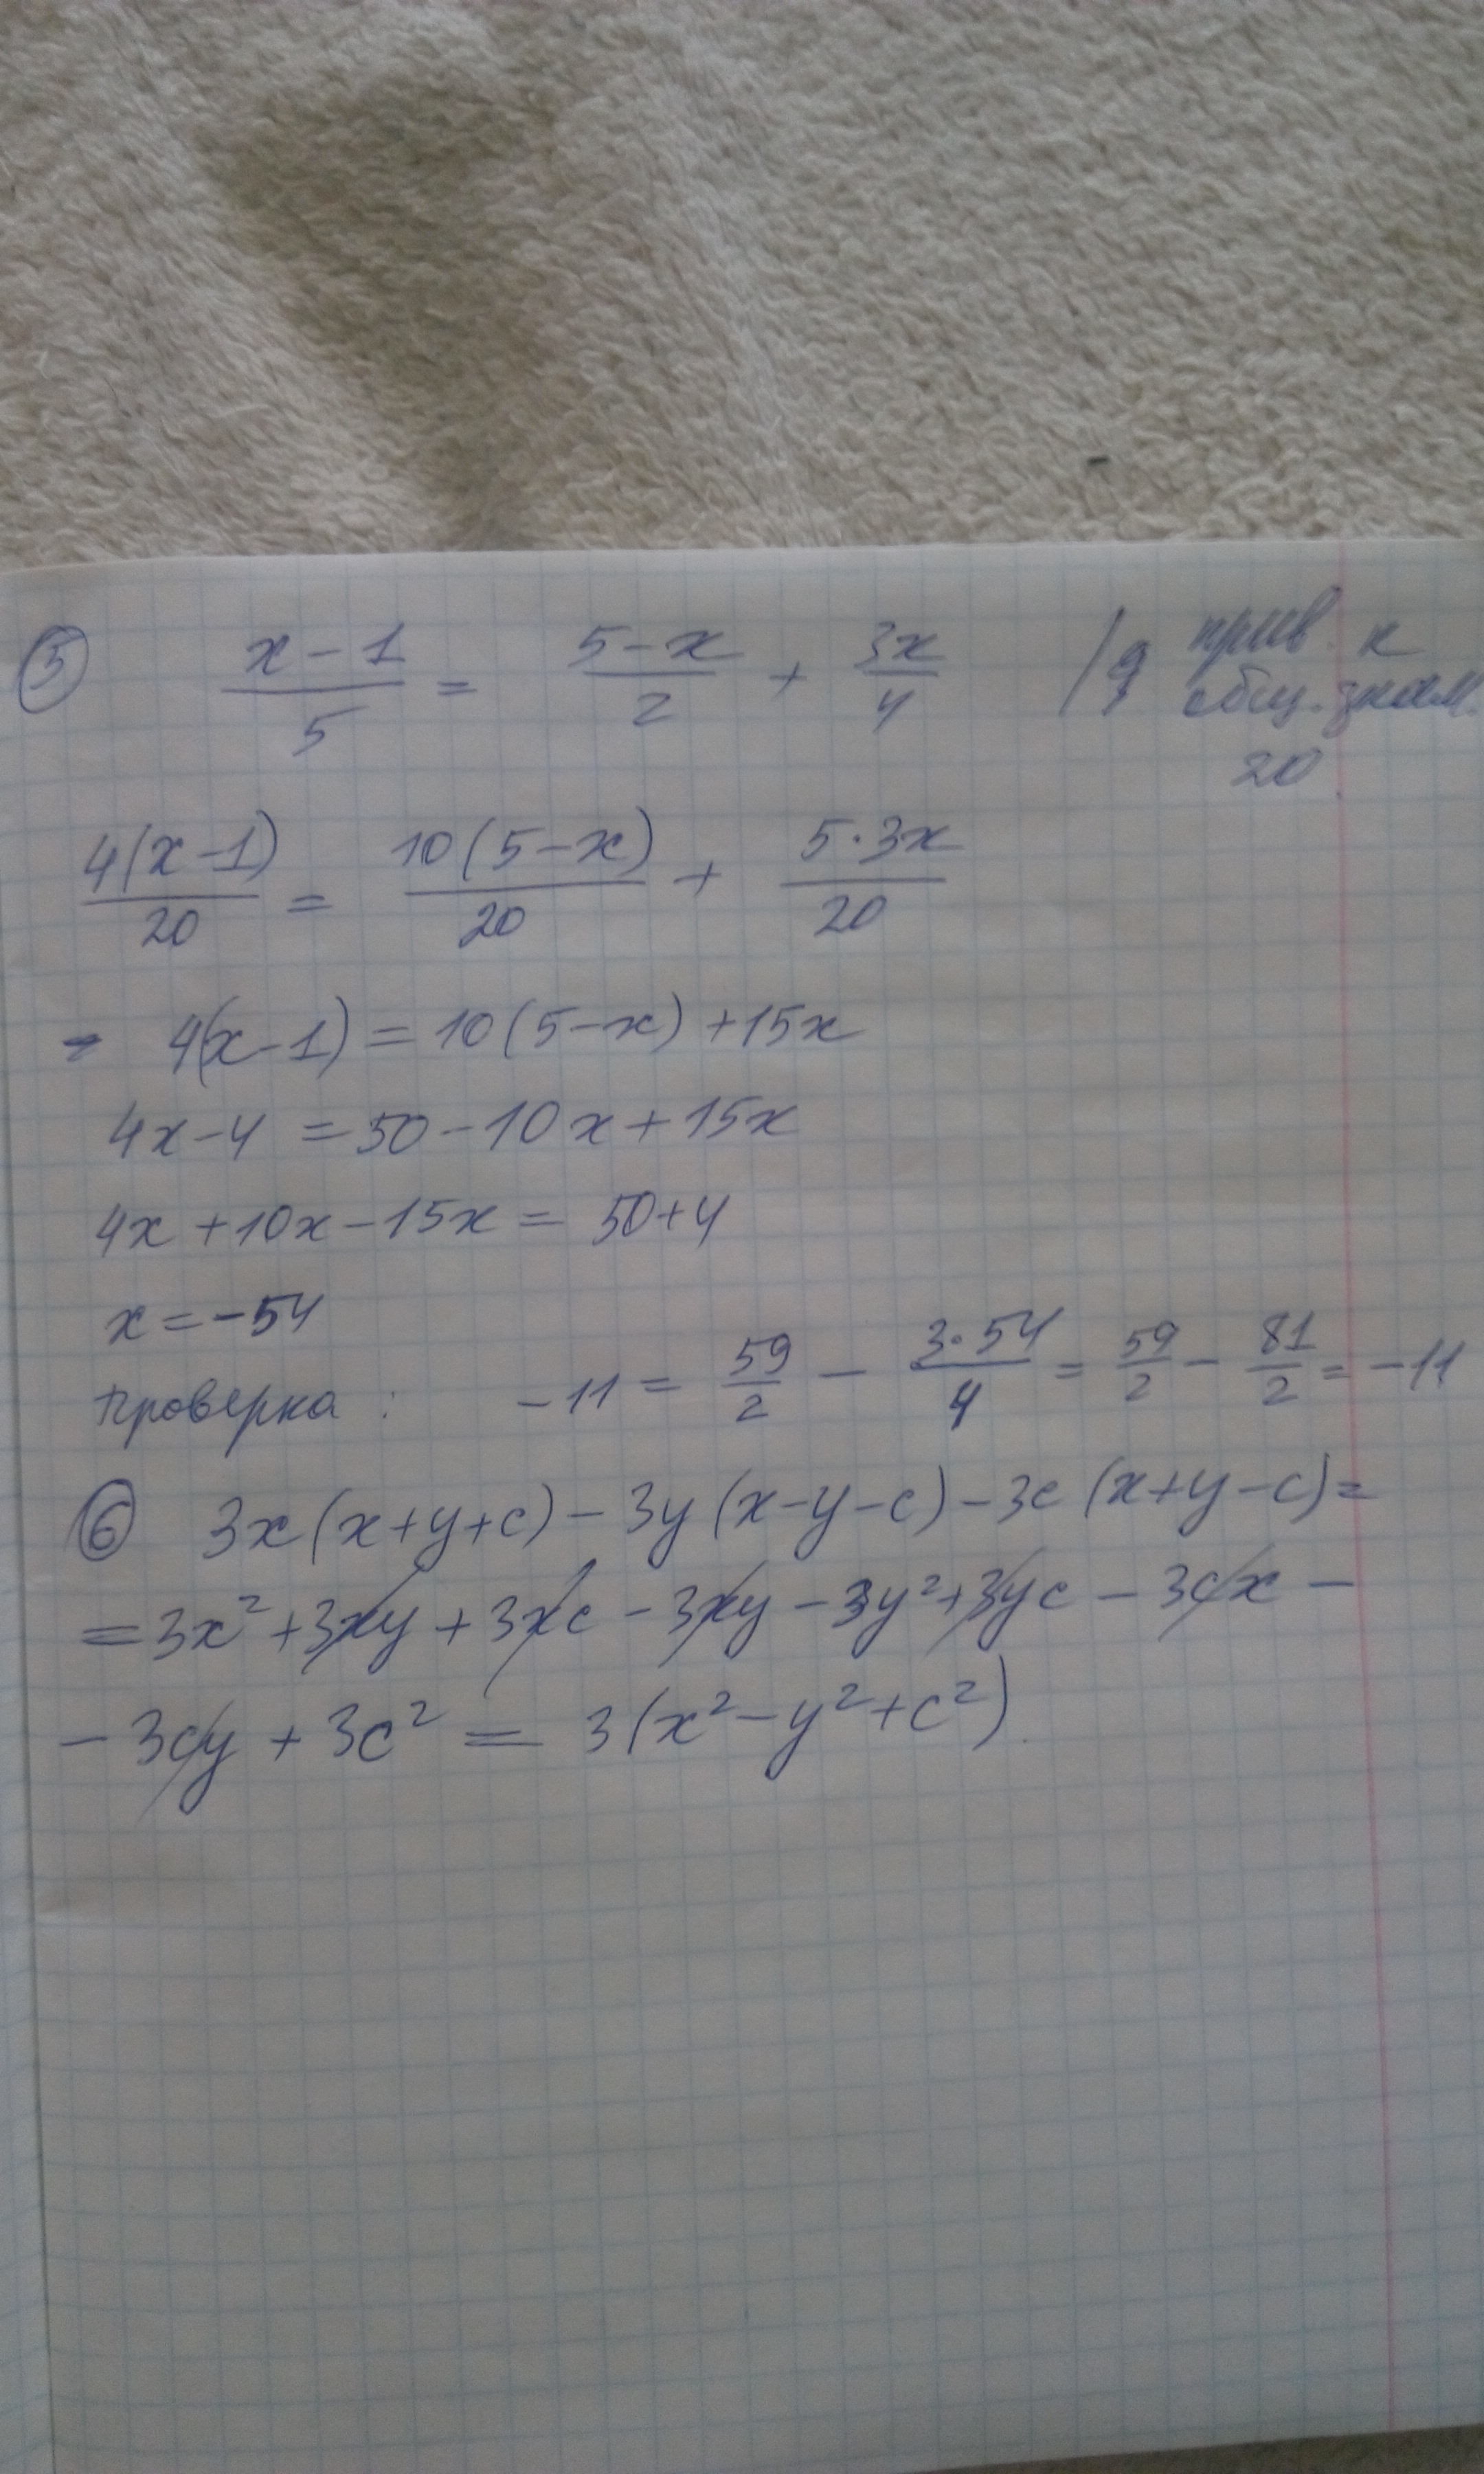 5 x-1/5 = 5-x/2 + 3x/4 / прив. к
общ. знам.
20
4(x-1)/20 = 10(5-x)/20 + 5·3x/20
- 4(x-1) = 10(5-x) +15x
4x-4 = 50-10x+15x
4x+10x-15x = 50+4
x = -54
Проверка : -11 = 59/2 - 3·54/4 = 59/2 - 81/2 = -11
6 3x(x+y+c)-3y(x-y-c)-3c(x+y-c)=
=3x²+3xy+3xc-3xy-3y²+3yc-3cx-
-3cy+3c² = 3(x²-y²+c²)